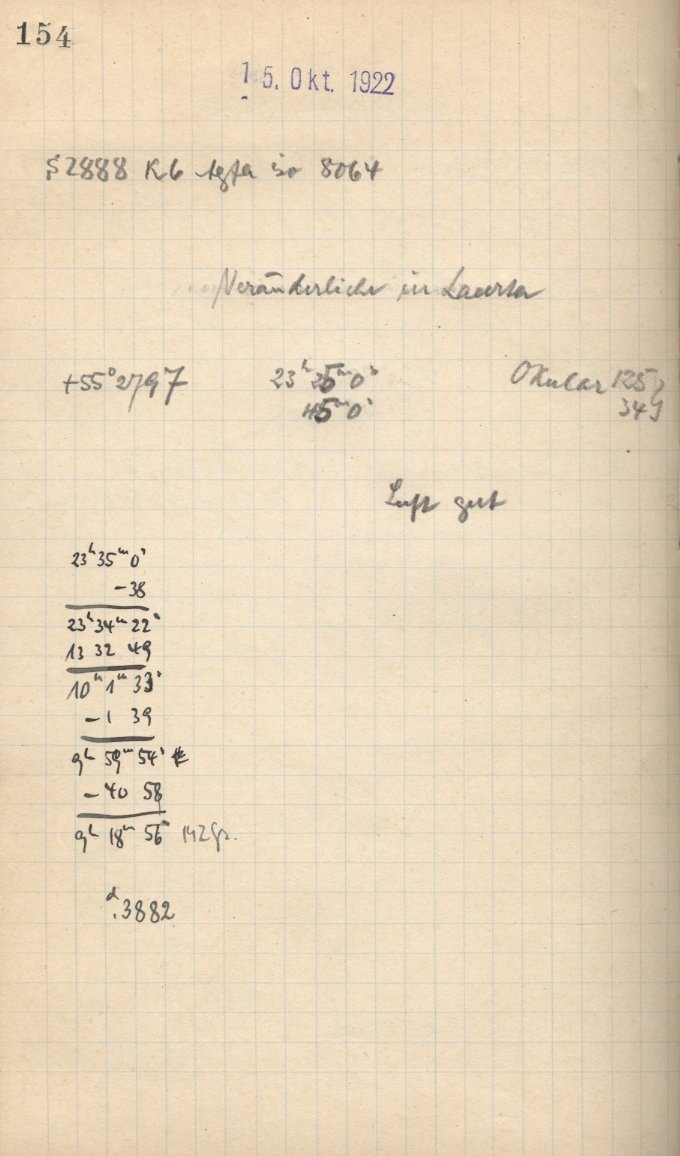 154
15. Okt. 1922
S 2888 K6 tgta iso 8064
Veränderliche in Lacerta
+55° 2797 23ʰ 25ᵐ 0ˢ Okular 125
45ᵐ 0ˢ 349
Luft gut
23ʰ 35ᵐ 0ˢ
-38
23ʰ 34ᵐ 22ˢ
13 32 49
10ʰ 1ᵐ 33ˢ
-1 39
9ʰ 59ᵐ 54ˢ
-40 58
9ʰ 18ᵐ 56ˢ MZGr.
ᵈ.3882